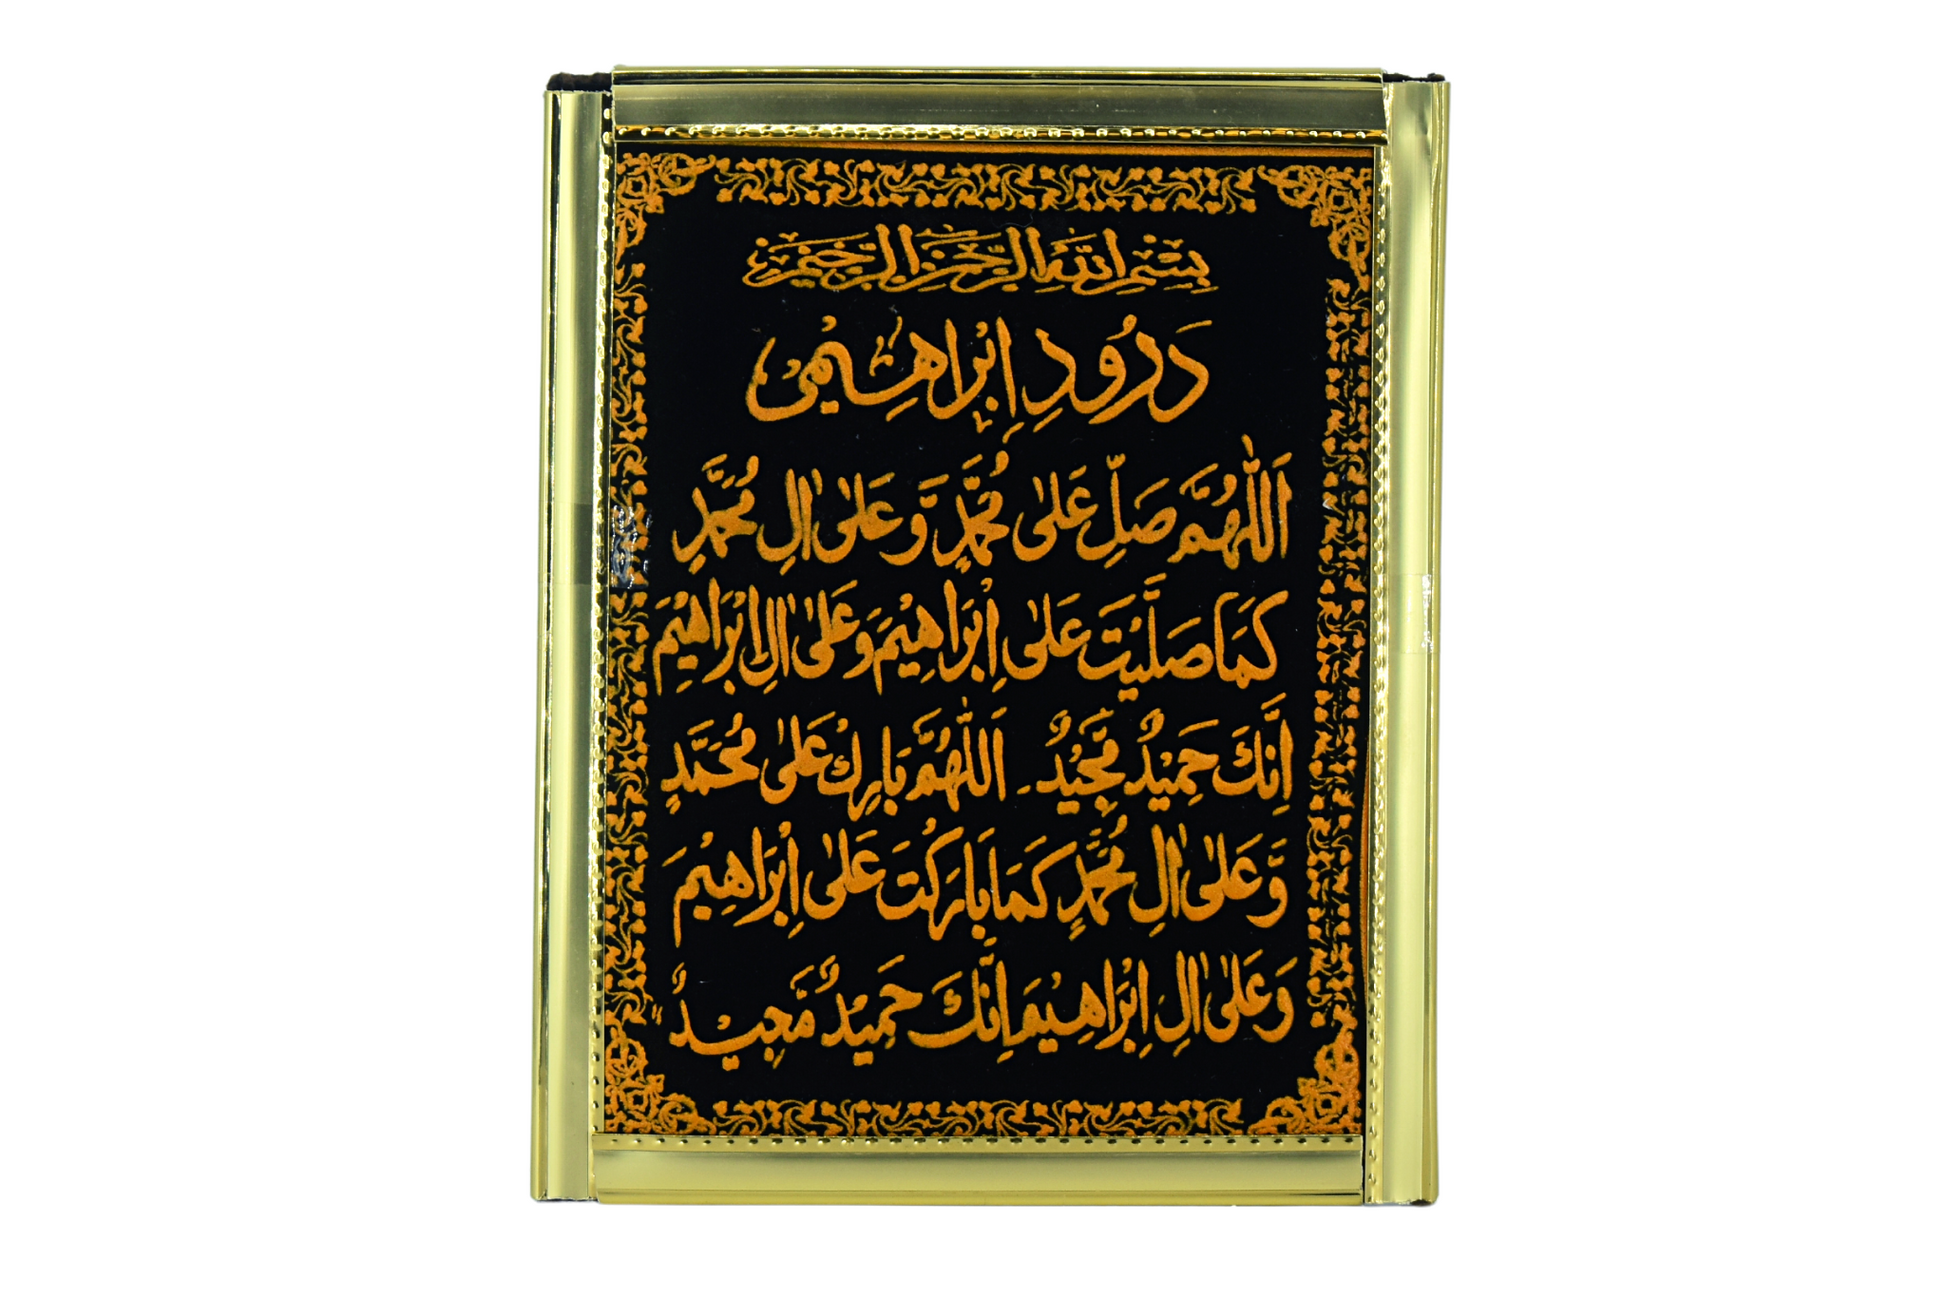 بِسْمِ اللهِ الرَّحْمٰنِ الرَّحِيْمِ
دَرُودِ اِبْرَاهِيْمِىْ
اَللّٰهُمَّ صَلِّ عَلٰى مُحَمَّدٍ وَّعَلٰى اٰلِ مُحَمَّدٍ
كَمَا صَلَّيْتَ عَلٰى اِبْرَاهِيْمَ وَعَلٰى اٰلِ اِبْرَاهِيْمَ
اِنَّكَ حَمِيْدٌ مَّجِيْدٌ۔ اَللّٰهُمَّ بَارِكْ عَلٰى مُحَمَّدٍ
وَّعَلٰى اٰلِ مُحَمَّدٍ كَمَا بَارَكْتَ عَلٰى اِبْرَاهِيْمَ
وَعَلٰى اٰلِ اِبْرَاهِيْمَ اِنَّكَ حَمِيْدٌ مَّجِيْدٌ